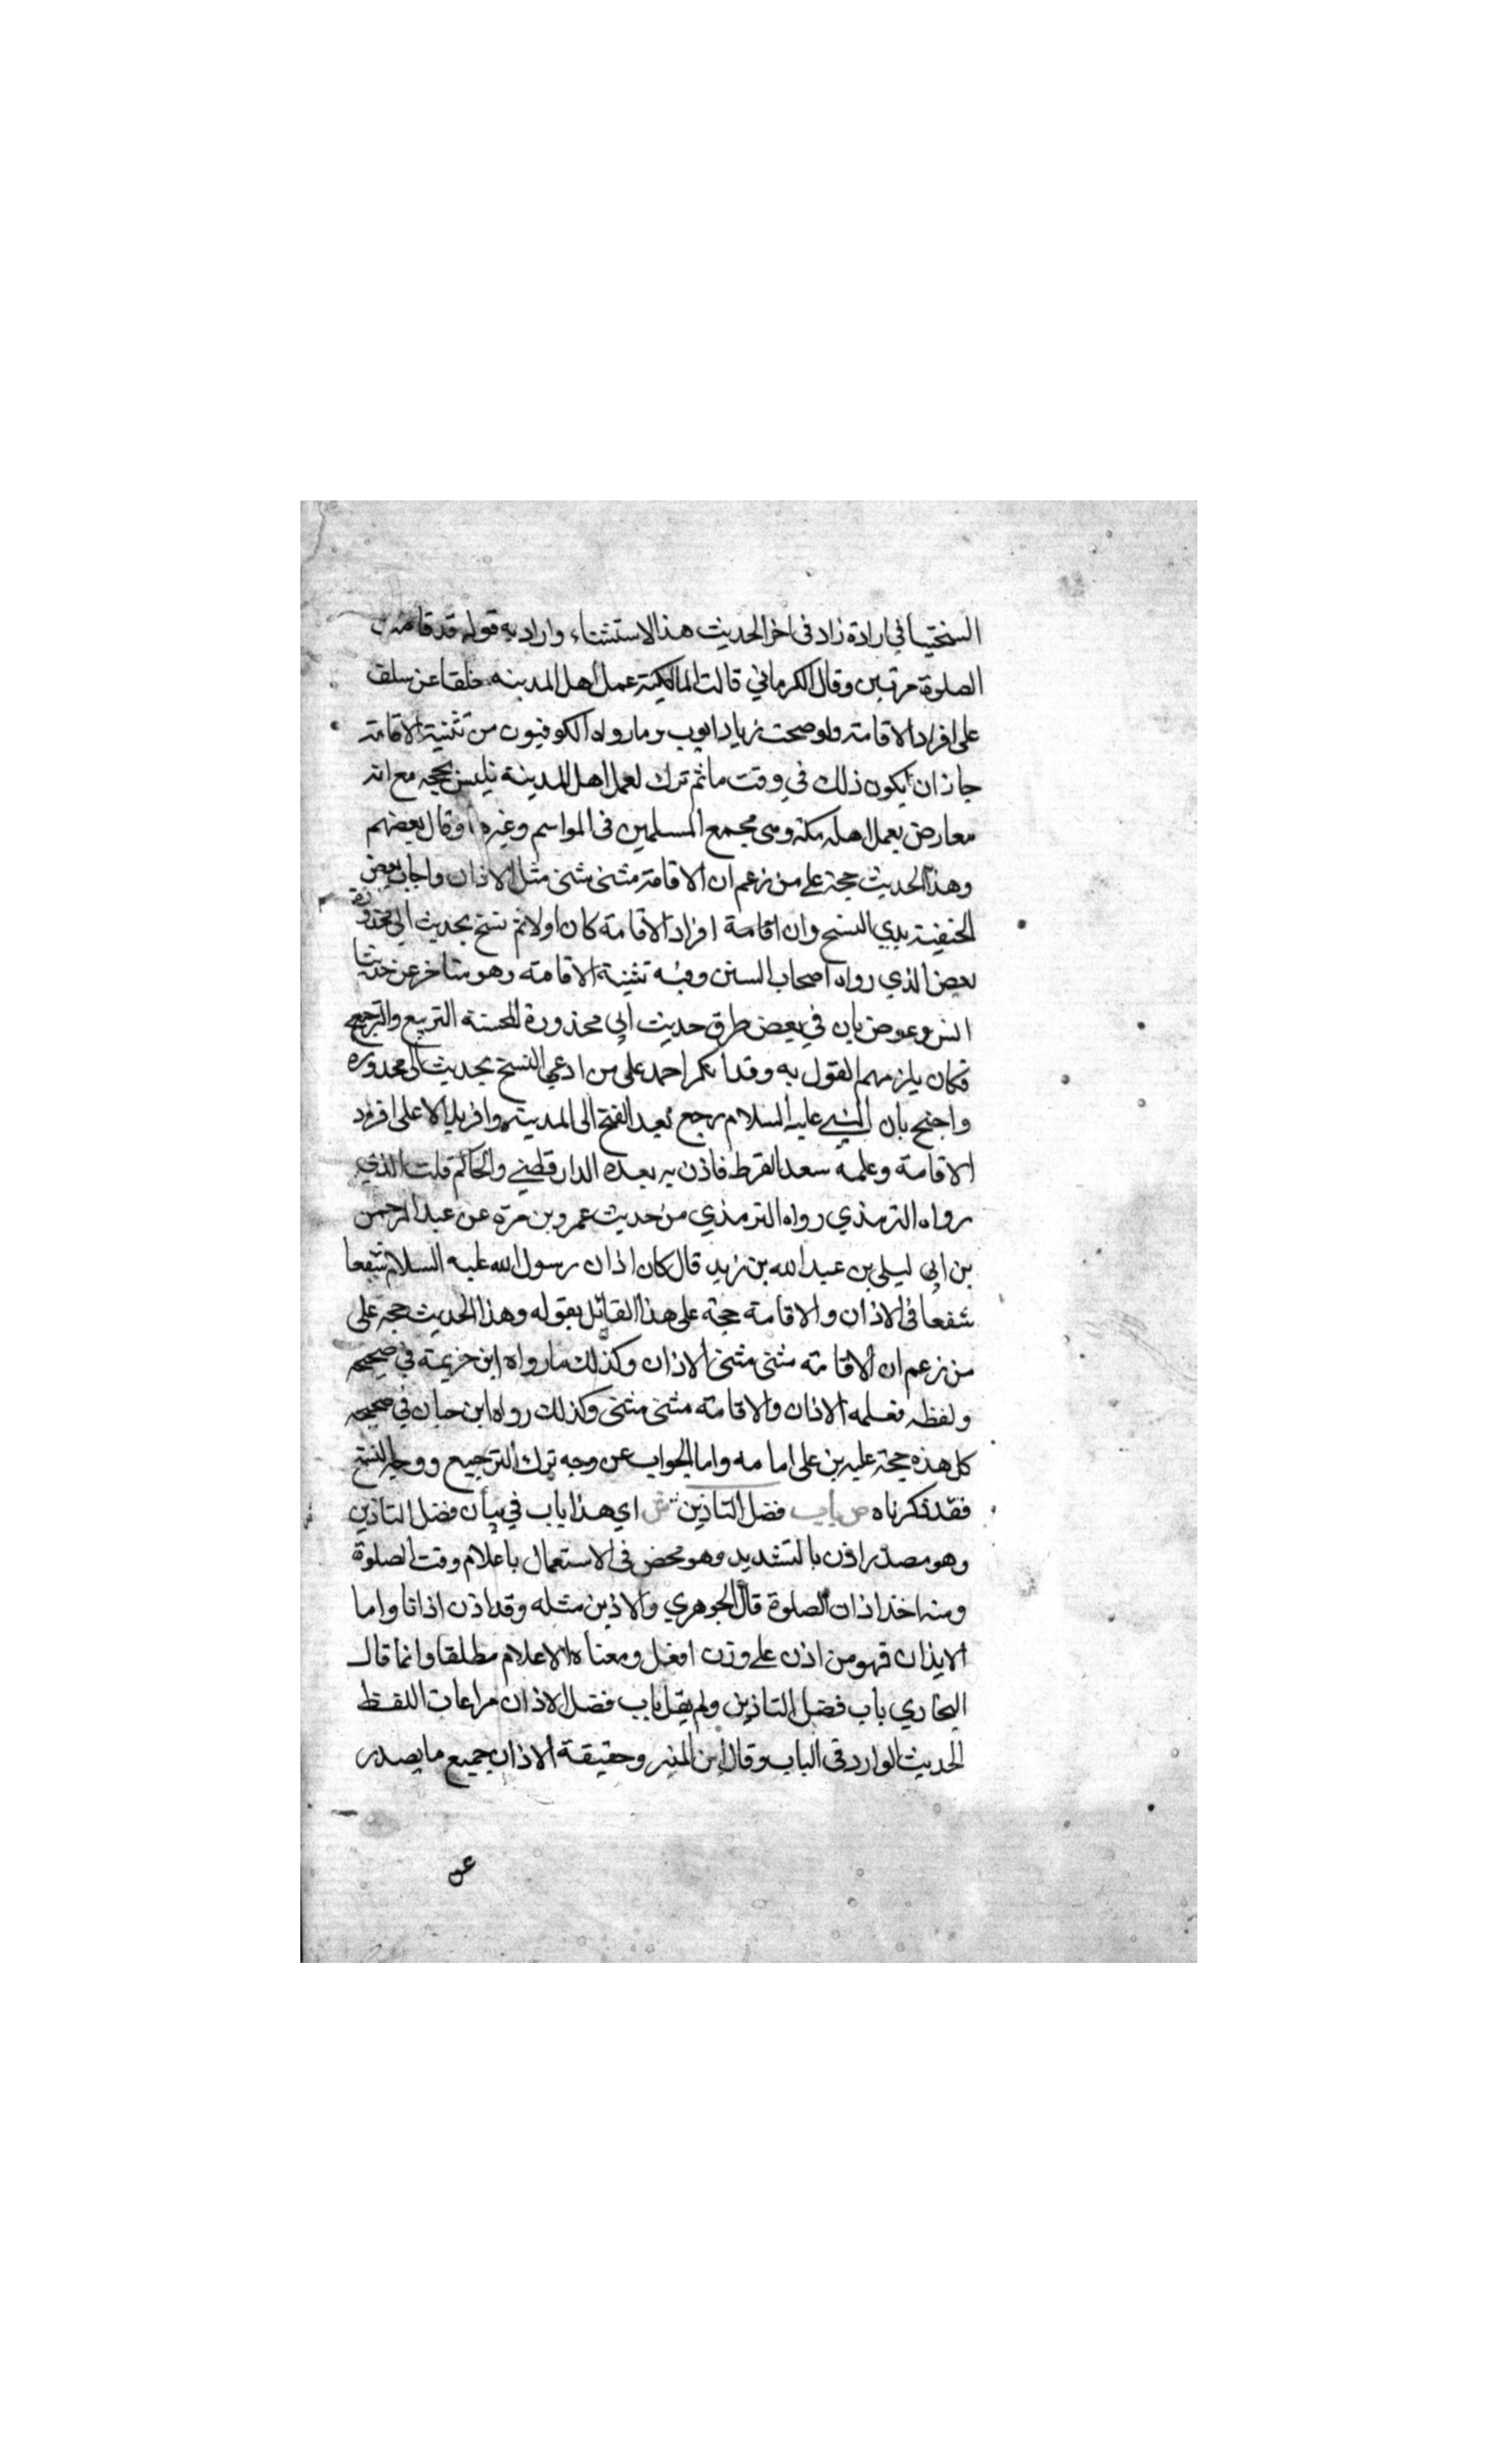 السختياني ارادة زاد في اخر الحديث هذا الاستثناء واراد به قوله قد قامت
الصلوة مرتين وقال الكرماني قالت المالكية عمل اهل المدينه خلفا عن سلف
على افراد الاقامته ولو صحت زياد ايوب وما رواه الكوفيون من تثنية الاقامته
جاز ان يكون ذلك في وقت ما ثم ترك لعمل اهل المدينة فليس بحجه مع انه
معارض بعمل اهل مكة وهي مجمع المسلمين في المواسم وغيرها وقال بعضهم
وهذا الحديث حجة على من زعم ان الاقامة مثنى مثنى مثل الاذان واجاب بعض
الحنفية بدي النسخ وان اقامة افراد الاقامة كان اولا ثم نسخ بحديث ابي محذورة
بعض الذي رواه اصحاب السنن وفيه تثنية الاقامته وهو متاخر عن حديث
انس وعوض بان في بعض طرق حديث ابي محذورة المحسنة التربيع والترجيع
فكان يلزمهم القول به وقد انكر احمد على من ادعى النسخ بحديث ابي محذوره
واحتج بان النبي عليه السلام رجع بعد الفتح الى المدينة واقر بلالا على افراد
الاقامة وعلمه سعد القرط فاذن به بعده الدارقطني والحاكم قلت الذي
رواه الترمذي رواه الترمذي من حديث عمرو بن مرة عن عبد الرحمن
بن ابي ليلى بن عبد الله بن زيد قال كان اذان رسول الله عليه السلام شفعا
شفعا في الاذان والاقامة حجة على هذا القائل بقوله وهذا الحديث حجة على
من زعم ان الاقامة مثنى مثنى الاذان وكذلك ما رواه ابن خزيمة في صحيحه
ولفظه فعلمه الاذان والاقامة مثنى مثنى وكذلك رواه ابن حبان في صحيحه
كل هذه حجة عليه بن على امامه واما الجواب عن وجه ترك الترجيع ووجه النسخ
فقد ذكرناه ص باب فضل التاذين ش اي هذا باب في بيان فضل التاذين
وهو مصدر اذن بالتشديد وهو مخض في الاستعمال باعلام وقت الصلوة
ومنه اخذ اذان الصلوة قال الجوهري والاذين مثله وقد اذن اذانا واما
الايذان فهو من اذن على وزن افعل ومعناه الاعلام مطلقا وانما قال
البخاري باب فضل التاذين ولم يقل باب فضل الاذان مراعات اللفظ
الحديث الوارد في الباب وقال ابن المنير وحقيقة الاذان جميع ما يصدر
عن